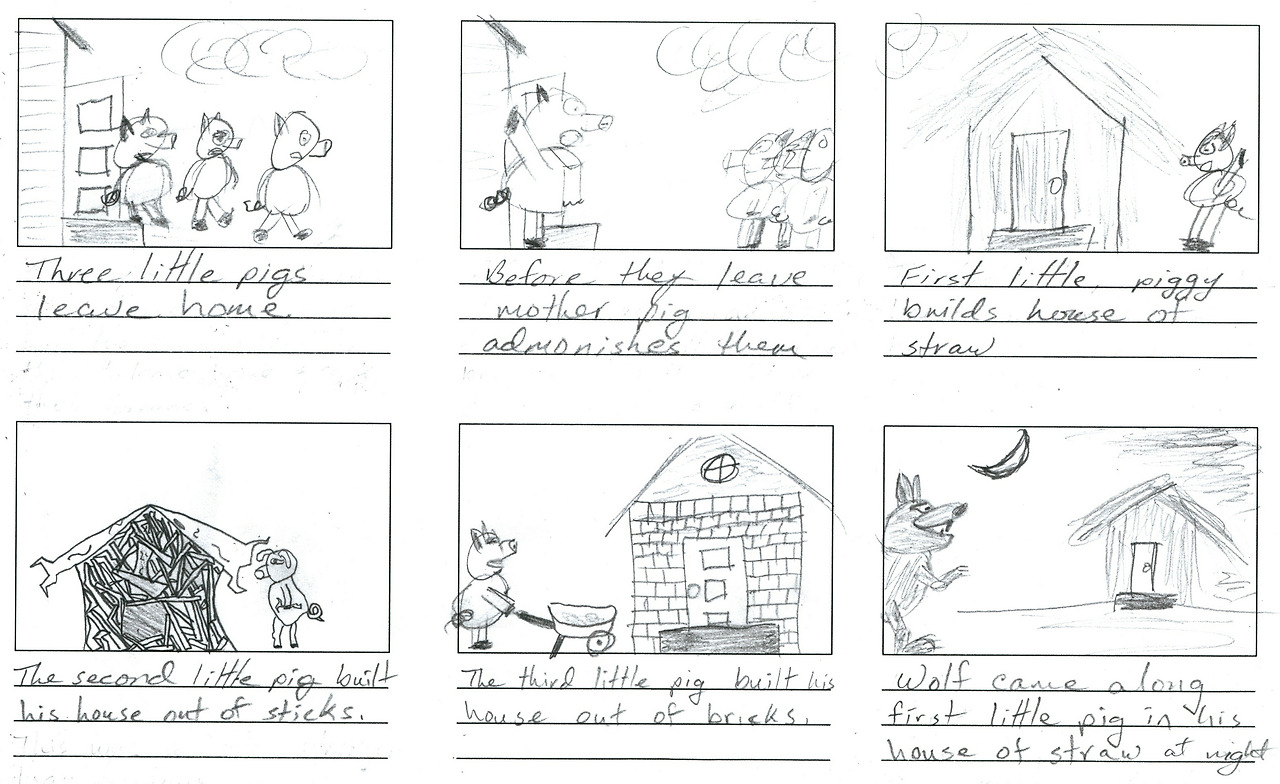 Three little pigs
leave home.
Before they leave
mother pig
admonishes them
First little piggy
builds house of
straw
The second little pig built
his house out of sticks.
The third little pig built his
house out of bricks.
Wolf came along
first little pig in his
house of straw at night